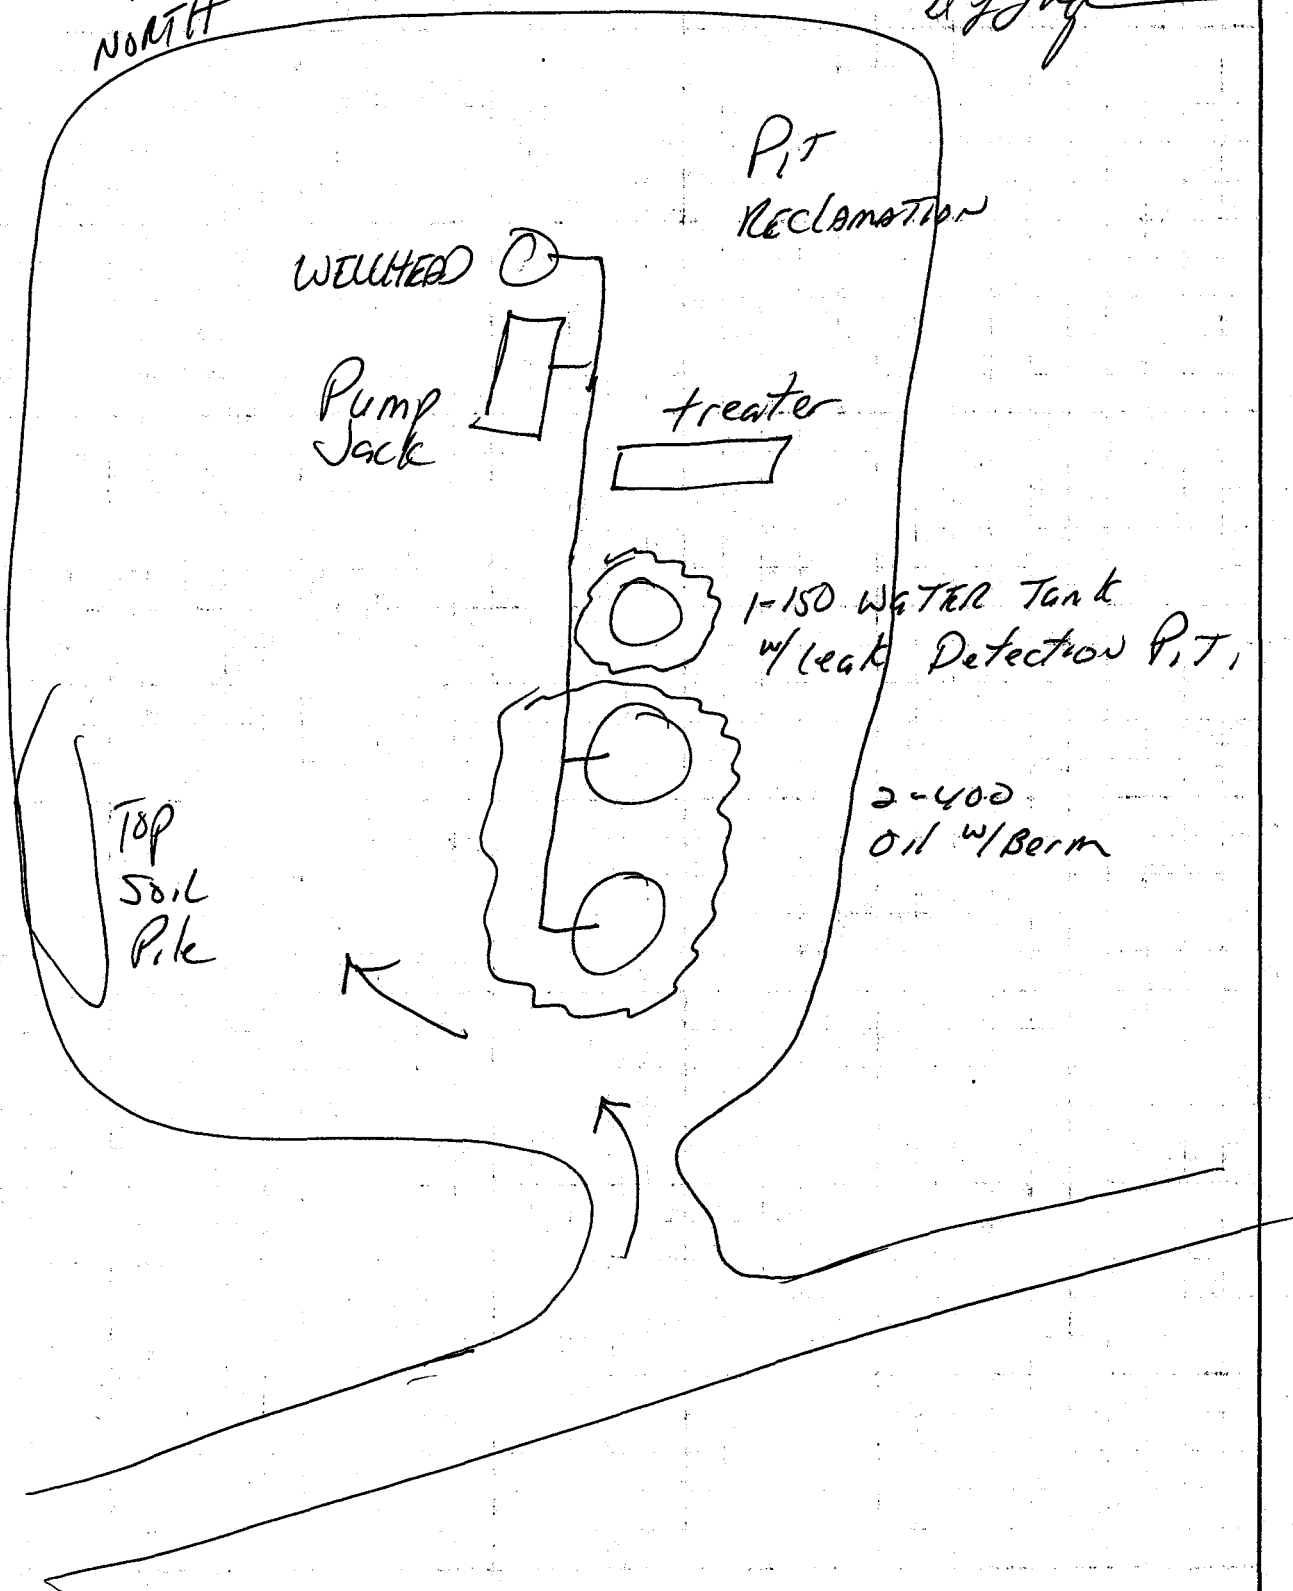 NORTH
PIT
RECLAMATION
WELLHEAD
Pump
Jack
treater
1-150 WATER Tank
w/ leak Detection PIT.
2-400
Oil w/Berm
Top
Soil
Pile